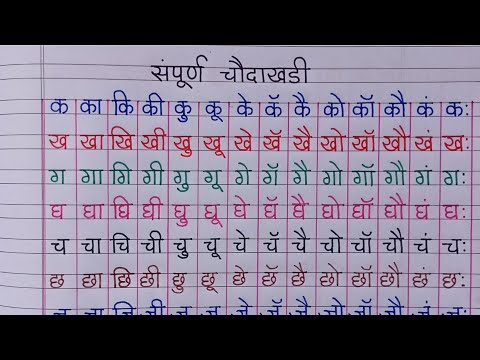 संपूर्ण चौदाखडी
क का कि की कु कू के कॅ कै को कॉ कौ कं कः
ख खा खि खी खु खू खे खॅ खै खो खॉ खौ खं खः
ग गा गि गी गु गू गे गॅ गै गो गॉ गौ गं गः
घ घा घि घी घु घू घे घॅ घै घो घॉ घौ घं घः
च चा चि ची चु चू चे चॅ चै चो चॉ चौ चं चः
छ छा छि छी छु छू छे छॅ छै छो छॉ छौ छं छः
ज जा जि जी जु जू जे जॅ जै जो जॉ जौ जं जः